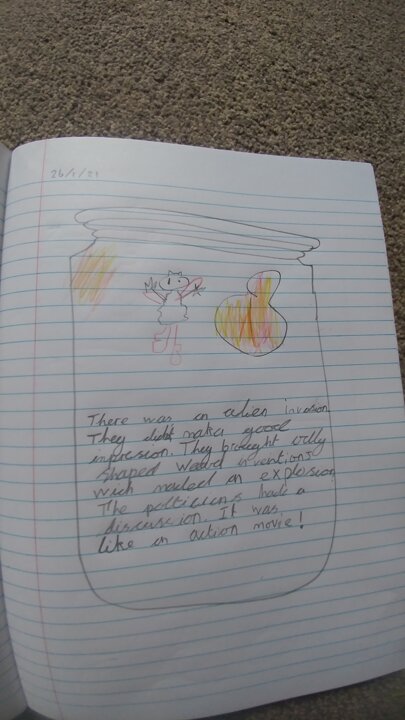 26/1/21
Me
There was an alien invasion
They didn't make a good
impression. They brought oddly
shaped weard inventions
wich maded an explosion
The politicians had a
discussion. It was
like an action movie!